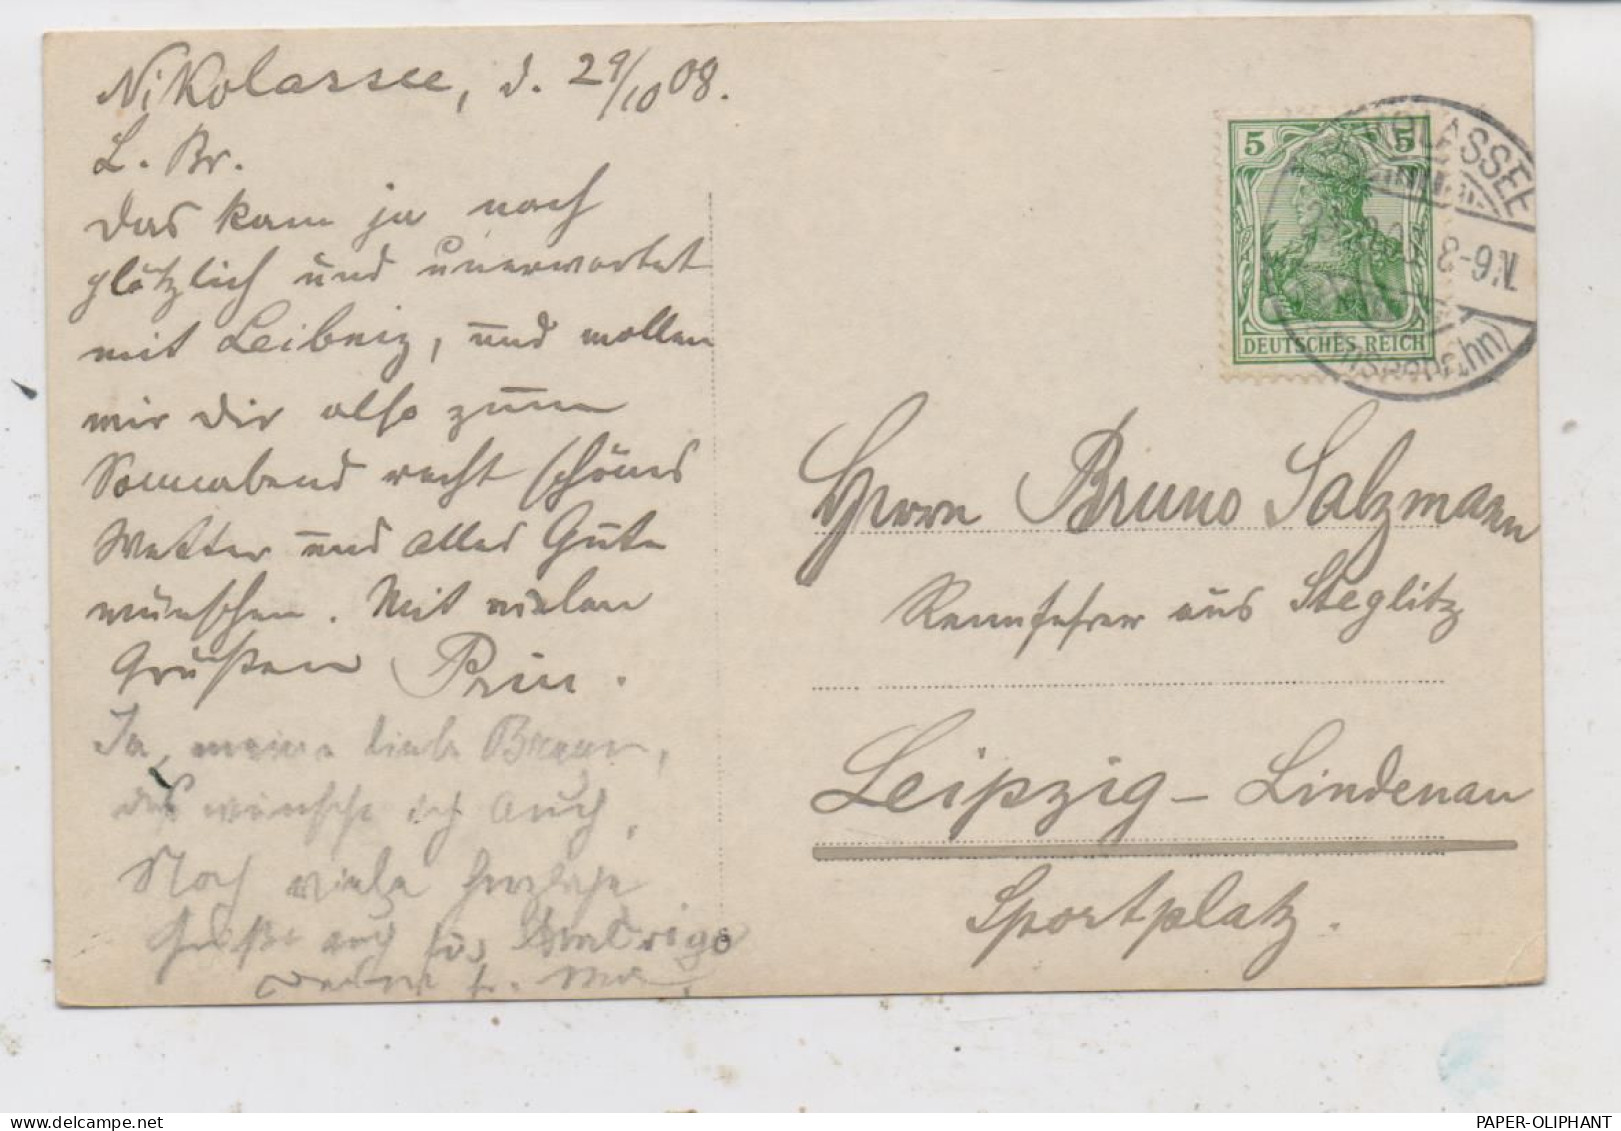 Nikolassee, d. 29/10 08.
L. Br.
Das kam ja noch
plötzlich und unerwartet
mit Leibniz, und wollen
wir Dir also zum
Sonnabend recht schönes
Wetter und alles Gute
wünschen. Mit vielen
Grüßen
Ja, meine liebe
das wünsche ich auch,
Noch viele herzliche
Grüße auch für
5 5
DEUTSCHES REICH
NIKOLASSEE
8-9N.
(Wannseebahn)
Herrn Bruno Salzmann
Rennfahrer aus Steglitz
Leipzig - Lindenau
Sportplatz.
delcampe.net
PAPER-OLIPHANT